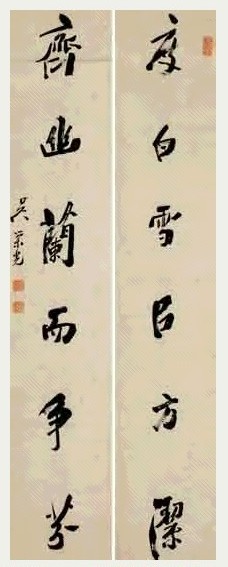 度白雪㠯方潔
齊幽蘭而争芬
吴榮光